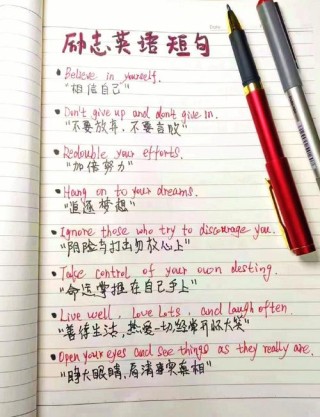 励志英语短句
Believe in yourself.
"相信自己"
Don't give up and don't give in.
"不要放弃，不要言败"
Redouble your efforts.
"加倍努力"
Hang on to your dreams.
"追逐梦想"
Ignore those who try to discourage you.
"阴险与打击勿放心上"
Take control of your own desting.
"命运掌握在自己手上"
Live well, love lots, and laugh often.
"善待生活，热爱一切，经常开怀大笑"
Open your eyes and see things as they really are.
"睁大眼睛，看清事实真相"